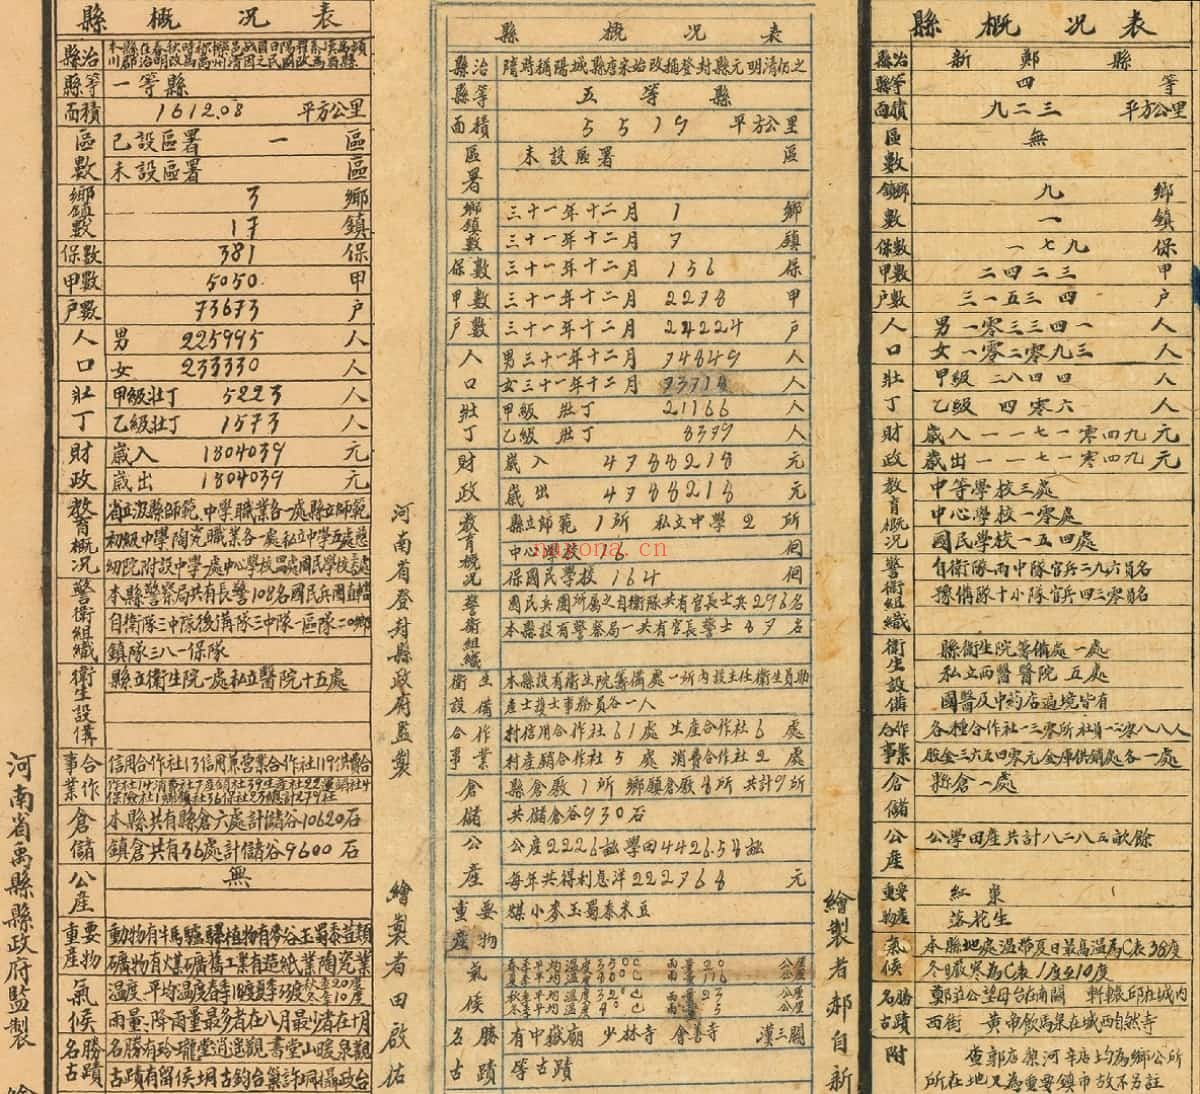 縣概况表
縣治
縣等 一等縣
面積 1612.08 平方公里
區數 己設區署 一 區
未設區署 區
鄉鎮數 3 鄉
17 鎮
保數 381 保
甲數 5050 甲
戸數 73673 戸
人口 男 225995 人
女 233330 人
壯丁 甲級壯丁 5223 人
乙級壯丁 1573 人
財政 歲入 1804039 元
歲出 1804039 元
教育概况 省立汲縣師範、中學、職業各一處縣立師範
初級中學陶瓷職業各一處私立中學五處慈
幼院附設中學一處中心學校
警衛組織 本縣警察局共有長警108名國民兵團直轄
自衛隊三中隊後備隊三中隊一區隊二0鄉
鎮隊三八一保隊
衛生設備 縣立衛生院一處私立醫院十五處
合作事業 信用合作社13信用兼營業合作社119供費合
倉儲 本縣共有縣倉六處計儲谷10620石
鎮倉共有36處計儲谷9600石
公產 無
重要產物 動物有牛馬驢騾植物有麥谷玉蜀黍荳類
礦物有煤礦舊工業有造紙業陶瓷業
氣候 溫度、平均溫度春季18度夏季33度秋季20度冬季10度
雨量、降雨量最多者在八月最少者在十月
名勝古蹟 名勝有玲瓏堂逍遥觀書堂山暖泉觀
古蹟有留侯垌古鈞台巢許垌攝政台
河南省禹縣縣政府監製
縣概况表
縣治 隋時稱陽城縣唐宋始改稱登封縣元明清因之
縣等 五等縣
面積 5519 平方公里
區署 未設區署 區
鄉鎮數 三十一年十二月 1 鄉
三十一年十二月 7 鎮
保數 三十一年十二月 156 保
甲數 三十一年十二月 2278 甲
戸數 三十一年十二月 24224 戸
人口 男三十一年十二月 74849 人
女三十一年十二月 人
壯丁 甲級壯丁 21166 人
乙級壯丁 8379 人
財政 歲入 4788218 元
歲出 4788218 元
教育概况 縣立師範1所 私立中學2所
中心學校 16 個
保國民學校 164 個
警衛組織 國民兵團所屬之自衛隊共有官長士兵296名
本縣設有警察局一共有官長警士87名
衛生設備 本縣設有衛生院籌備處一所內設主任衛生員助
產士護士事務員各一人
合作事業 村信用合作社61處 生産合作社6處
村產銷合作社5處 消費合作社2處
倉儲 縣倉廒1所 鄉鎮倉廒8所 共計9所
共儲倉谷930石
公產 公産2226畝學田4426.58畝
每年共得利息洋222768元
重要產物 煤小麥玉蜀黍米豆
氣候
名勝古蹟 有中嶽廟 少林寺 會善寺 漢三闕
等古蹟
河南省登封縣政府監製
繪製者田啟佑
nayona.cn
縣概况表
縣治 新鄭縣
縣等 四等
面積 九二三 平方公里
區數 無
鄉鎮數 九 鄉
一 鎮
保數 一七九 保
甲數 二四二三 甲
戸數 三一五三四 戸
人口 男 一零三三四一 人
女 一零二零九三 人
壯丁 甲級 二八四四 人
乙級 四零六 人
財政 歲入 一一七一零四九元
歲出 一一七一零四九元
教育概况 中等學校三處
中心學校一零處
國民學校一五四處
警衛組織 自衛隊兩中隊官兵二九六員名
豫備隊十小隊官兵四三零員名
衛生設備 縣衛生院籌備處一處
私立西醫醫院五處
國醫及中葯店遍境皆有
合作事業 各種合作社一三零所社員一二零八八人
股金三六五四零元金庫供銷處各一處
倉儲 縣倉一處
公產 公學田産共計八二八三畝餘
重要物産 紅棗
落花生
氣候 本縣地處溫帶夏日最高溫為C表38度
冬日最寒為C表1度至10度
名勝古蹟 鄭莊公望母台在南關 軒轅丘在城內
西街 黃帝飲馬泉在城西自然寺
附 查郭店梨河辛店均為鄉公所
所在地又為重要鎮市故不另註
繪製者郝自新